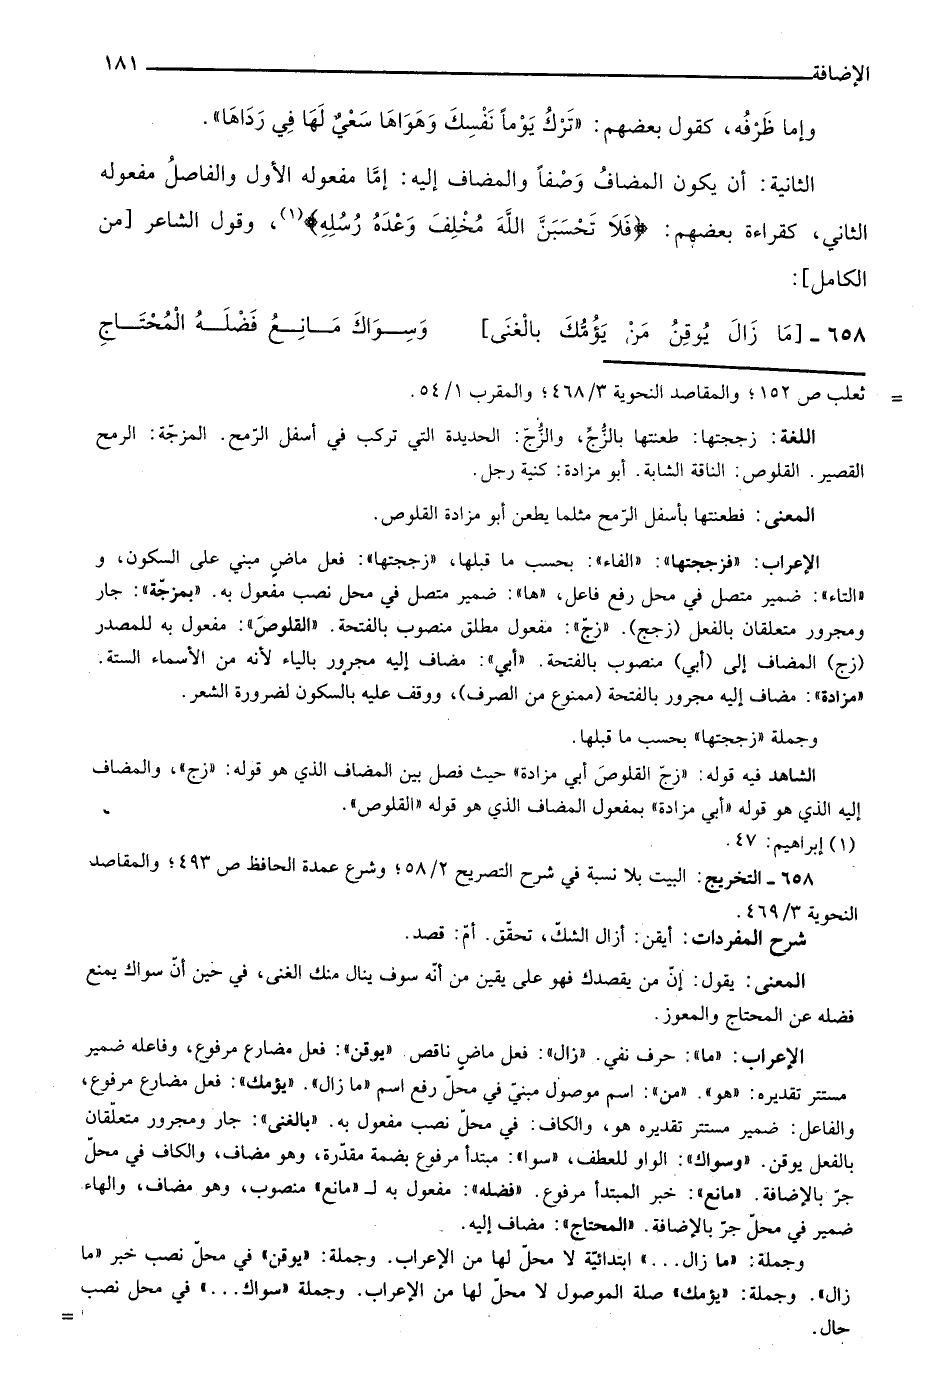 الإضافة ١٨١
وإما ظَرْفُه، كقول بعضهم: «تَرْكُ يَوْماً نَفْسِكَ وَهَوَاهَا سَعْيٌ لَهَا فِي رَدَاهَا».
الثانية: أن يكون المضافُ وَصْفاً والمضاف إليه: إمَّا مفعوله الأول والفاصلُ مفعوله
الثاني، كقراءة بعضهم: ﴿فَلَا تَحْسَبَنَّ اللَّهَ مُخْلِفَ وَعْدَهُ رُسُلِهِ﴾(١)، وقول الشاعر [من
الكامل]:
٦٥٨ ـ [مَا زَالَ يُوقِنُ مَنْ يَؤُمُّكَ بِالْغنَى] وَسِــوَاكَ مَــانِــعُ فَضْلَــهُ الْمُحْتَــاجِ
= ثعلب ص ١٥٢؛ والمقاصد النحوية ٤٦٨/٣؛ والمقرب ٥٤/١.
اللغة: زججتها: طعنتها بالزُّجِّ، والزُّجّ: الحديدة التي تركب في أسفل الرّمح. المزجّة: الرمح
القصير. القلوص: الناقة الشابة. أبو مزادة: كنية رجل.
المعنى: فطعنتها بأسفل الرّمح مثلما يطعن أبو مزادة القلوص.
الإعراب: «فزججتها»: «الفاء»: بحسب ما قبلها، «زججتها»: فعل ماضٍ مبني على السكون، و
«التاء»: ضمير متصل في محل رفع فاعل، «ها»: ضمير متصل في محل نصب مفعول به. «بمزجّة»: جار
ومجرور متعلقان بالفعل (زجج). «زجّ»: مفعول مطلق منصوب بالفتحة. «القلوصَ»: مفعول به للمصدر
(زج) المضاف إلى (أبي) منصوب بالفتحة. «أبي»: مضاف إليه مجرور بالياء لأنه من الأسماء الستة.
«مزادة»: مضاف إليه مجرور بالفتحة (ممنوع من الصرف)، ووقف عليه بالسكون لضرورة الشعر.
وجملة «زججتها» بحسب ما قبلها.
الشاهد فيه قوله: «زجّ القلوصَ أبي مزادة» حيث فصل بين المضاف الذي هو قوله: «زج»، والمضاف
إليه الذي هو قوله «أبي مزادة» بمفعول المضاف الذي هو قوله «القلوص».
(١) إبراهيم: ٤٧.
٦٥٨ ـ التخريج: البيت بلا نسبة في شرح التصريح ٥٨/٢؛ وشرع عمدة الحافظ ص ٤٩٣؛ والمقاصد
النحوية ٤٦٩/٣.
شرح المفردات: أيقن: أزال الشكّ، تحقّق. أمّ: قصد.
المعنى: يقول: إنّ من يقصدك فهو على يقين من أنّه سوف ينال منك الغنى، في حين أنّ سواك يمنع
فضله عن المحتاج والمعوز.
الإعراب: «ما»: حرف نفي. «زال»: فعل ماضٍ ناقص. «يوقن»: فعل مضارع مرفوع، وفاعله ضمير
مستتر تقديره: «هو». «من»: اسم موصول مبنيّ في محلّ رفع اسم «ما زال». «يؤمك»: فعل مضارع مرفوع،
والفاعل: ضمير مستتر تقديره هو، والكاف: في محلّ نصب مفعول به. «بالغنى»: جار ومجرور متعلّقان
بالفعل يوقن. «وسواك»: الواو للعطف، «سوا»: مبتدأ مرفوع بضمة مقدّرة، وهو مضاف، والكاف في محلّ
جرّ بالإضافة. «مانع»: خبر المبتدأ مرفوع. «فضله»: مفعول به لـ«مانع» منصوب، وهو مضاف، والهاء
ضمير في محلّ جرّ بالإضافة. «المحتاج»: مضاف إليه.
وجملة: «ما زال...» ابتدائيّة لا محلّ لها من الإعراب. وجملة: «يوقن» في محلّ نصب خبر «ما
زال». وجملة: «يؤمك» صلة الموصول لا محلّ لها من الإعراب. وجملة «سواك...» في محل نصب
حال. =